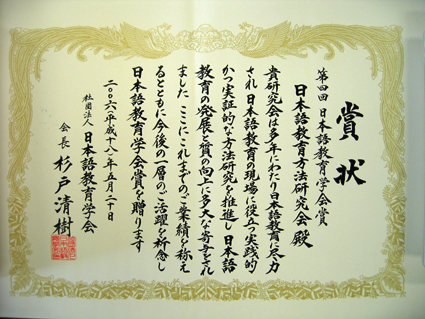 賞状
第四回 日本語教育学会賞
日本語教育方法研究会 殿
貴研究会は多年にわたり日本語教育に尽力
され 日本語教育の現場に役立つ実践的
かつ実証的な方法研究を推進し 日本語
教育の発展と質の向上に多大な寄与をされ
ました ここにこれまでのご業績を称え
るとともに今後の一層のご活躍を祈念し
日本語教育学会賞を贈ります
二〇〇六(平成十八)年五月二十日
社団法人 日本語教育学会
会長 杉戸清樹